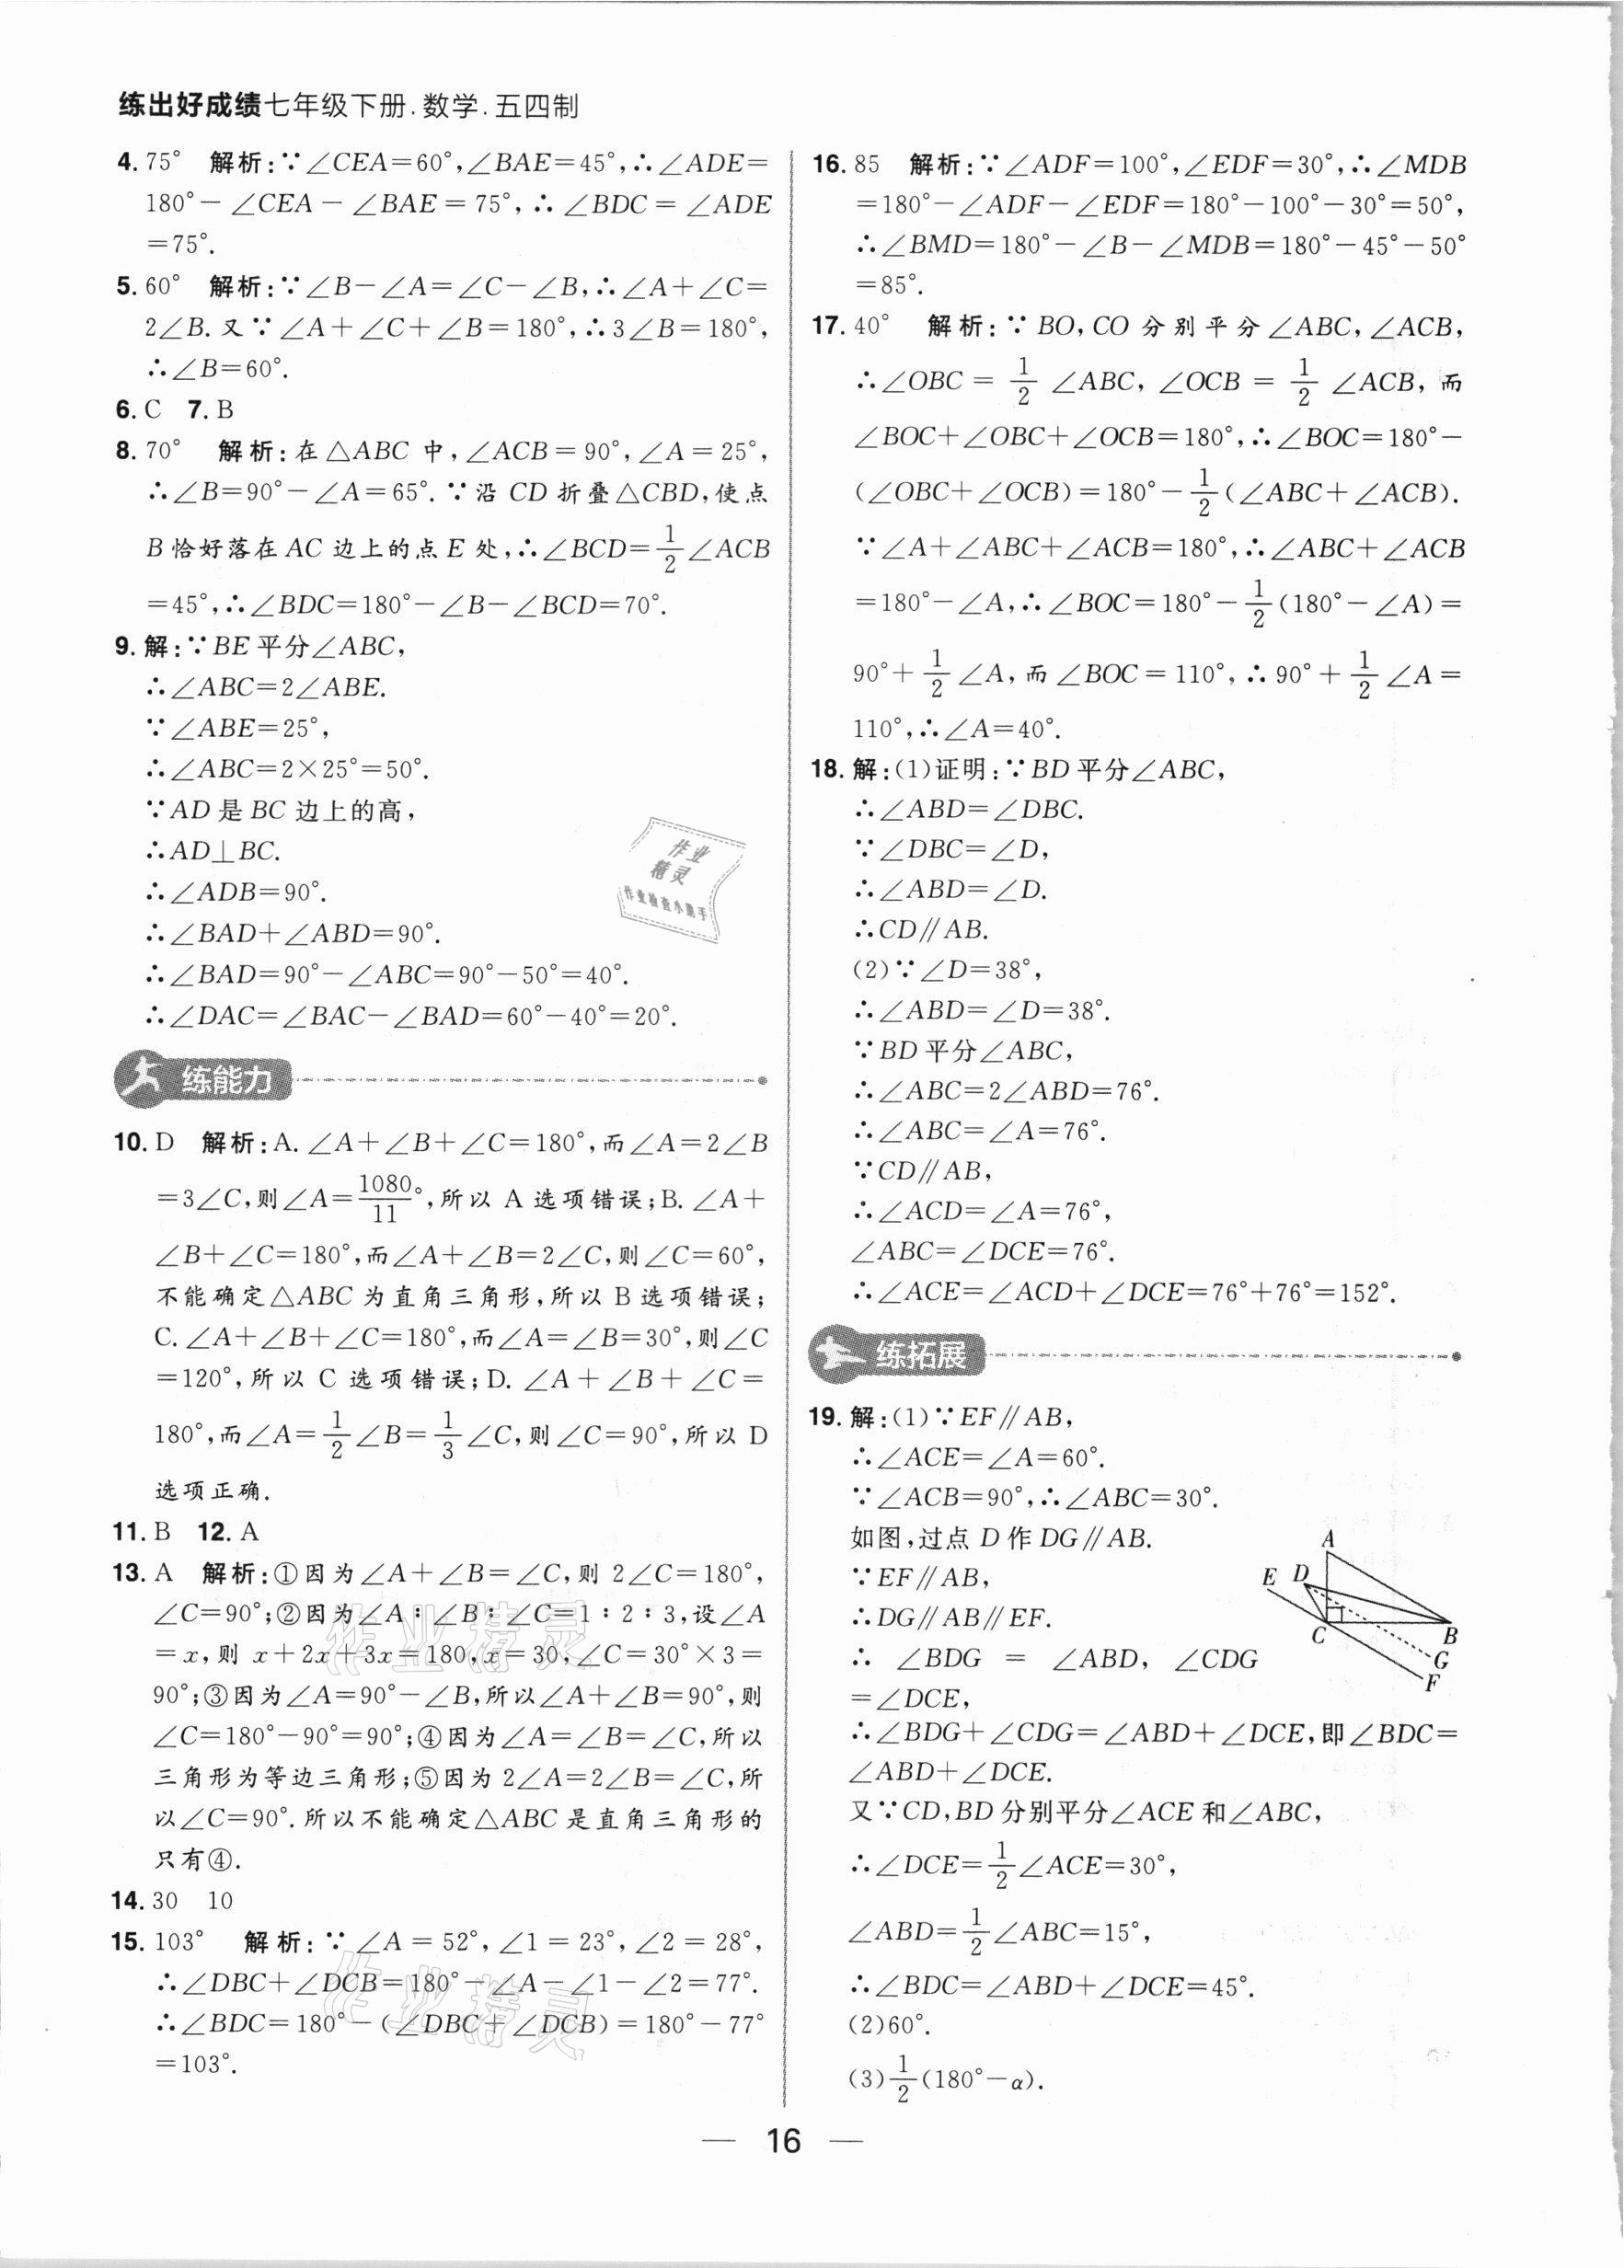 练出好成绩七年级下册.数学.五四制
4. 75° 解析:∵∠CEA=60°,∠BAE=45°,∴∠ADE=
180°-∠CEA-∠BAE=75°,∴∠BDC=∠ADE
=75°.
5. 60° 解析:∵∠B-∠A=∠C-∠B,∴∠A+∠C=
2∠B.又∵∠A+∠C+∠B=180°,∴3∠B=180°,
∴∠B=60°.
6. C 7. B
8. 70° 解析:在△ABC中,∠ACB=90°,∠A=25°,
∴∠B=90°-∠A=65°.∵沿CD折叠△CBD,使点
B恰好落在AC边上的点E处,∴∠BCD=1/2∠ACB
=45°,∴∠BDC=180°-∠B-∠BCD=70°.
9. 解:∵BE平分∠ABC,
∴∠ABC=2∠ABE.
∵∠ABE=25°,
∴∠ABC=2×25°=50°.
∵AD是BC边上的高,
∴AD⊥BC.
∴∠ADB=90°.
∴∠BAD+∠ABD=90°.
∴∠BAD=90°-∠ABC=90°-50°=40°.
∴∠DAC=∠BAC-∠BAD=60°-40°=20°.
练能力
10. D 解析:A.∠A+∠B+∠C=180°,而∠A=2∠B
=3∠C,则∠A=1080/11°,所以A选项错误;B.∠A+
∠B+∠C=180°,而∠A+∠B=2∠C,则∠C=60°,
不能确定△ABC为直角三角形,所以B选项错误;
C.∠A+∠B+∠C=180°,而∠A=∠B=30°,则∠C
=120°,所以C选项错误;D.∠A+∠B+∠C=
180°,而∠A=1/2∠B=1/3∠C,则∠C=90°,所以D
选项正确.
11. B 12. A
13. A 解析:①因为∠A+∠B=∠C,则2∠C=180°,
∠C=90°;②因为∠A∶∠B∶∠C=1∶2∶3,设∠A
=x,则x+2x+3x=180,x=30,∠C=30°×3=
90°;③因为∠A=90°-∠B,所以∠A+∠B=90°,则
∠C=180°-90°=90°;④因为∠A=∠B=∠C,所以
三角形为等边三角形;⑤因为2∠A=2∠B=∠C,所
以∠C=90°.所以不能确定△ABC是直角三角形的
只有④.
14. 30 10
15. 103° 解析:∵∠A=52°,∠1=23°,∠2=28°,
∴∠DBC+∠DCB=180°-∠A-∠1-∠2=77°.
∴∠BDC=180°-(∠DBC+∠DCB)=180°-77°
=103°.
16. 85 解析:∵∠ADF=100°,∠EDF=30°,∴∠MDB
=180°-∠ADF-∠EDF=180°-100°-30°=50°,
∴∠BMD=180°-∠B-∠MDB=180°-45°-50°
=85°.
17. 40° 解析:∵BO,CO分别平分∠ABC,∠ACB,
∴∠OBC=1/2∠ABC,∠OCB=1/2∠ACB,而
∠BOC+∠OBC+∠OCB=180°,∴∠BOC=180°-
(∠OBC+∠OCB)=180°-1/2(∠ABC+∠ACB).
∵∠A+∠ABC+∠ACB=180°,∴∠ABC+∠ACB
=180°-∠A,∴∠BOC=180°-1/2(180°-∠A)=
90°+1/2∠A,而∠BOC=110°,∴90°+1/2∠A=
110°,∴∠A=40°.
18. 解:(1)证明:∵BD平分∠ABC,
∴∠ABD=∠DBC.
∵∠DBC=∠D,
∴∠ABD=∠D.
∴CD∥AB.
(2)∵∠D=38°,
∴∠ABD=∠D=38°.
∵BD平分∠ABC,
∴∠ABC=2∠ABD=76°.
∴∠ABC=∠A=76°.
∵CD∥AB,
∴∠ACD=∠A=76°,
∠ABC=∠DCE=76°.
∴∠ACE=∠ACD+∠DCE=76°+76°=152°.
练拓展
19. 解:(1)∵EF∥AB,
∴∠ACE=∠A=60°.
∵∠ACB=90°,∴∠ABC=30°.
如图,过点D作DG∥AB.
∵EF∥AB,
∴DG∥AB∥EF.
∴∠BDG=∠ABD,∠CDG
=∠DCE,
∴∠BDG+∠CDG=∠ABD+∠DCE,即∠BDC=
∠ABD+∠DCE.
又∵CD,BD分别平分∠ACE和∠ABC,
∴∠DCE=1/2∠ACE=30°,
∠ABD=1/2∠ABC=15°,
∴∠BDC=∠ABD+∠DCE=45°.
(2)60°.
(3)1/2(180°-α).
A
E D
C B
G
F
作业
精灵
作业检查小助手
作业精灵
作业精灵
— 16 —